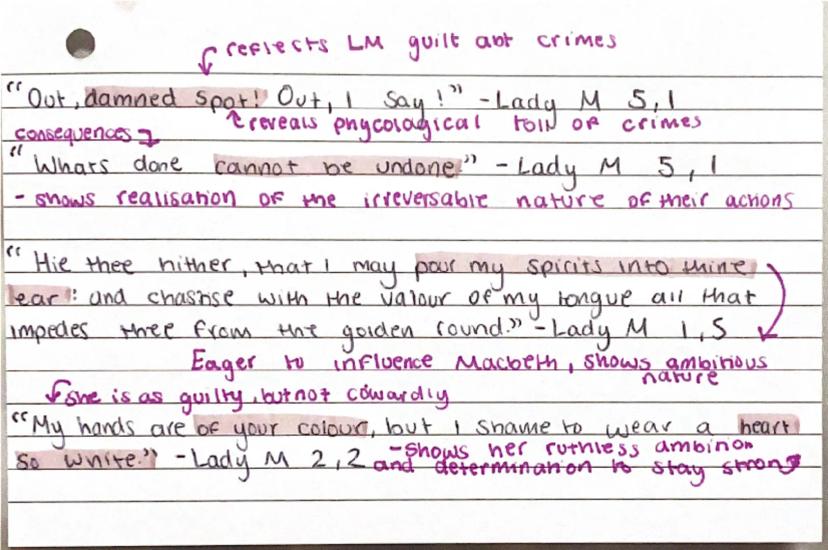 reflects LM guilt abt crimes
"Out, damned spot! Out, I say!" - Lady M 5,1
reveals phycological toll of crimes
consequences
"Whats done cannot be undone." - Lady M 5,1
- shows realisation of the irreversable nature of their actions
"Hie thee hither, that I may pour my spirits into thine
ear: and chastise with the valour of my tongue all that
impedes thee from the golden round." - Lady M 1,5
Eager to influence Macbeth, shows ambitious
nature
she is as guilty, but not cowardly
"My hands are of your colour, but I shame to wear a heart
so white." - Lady M 2,2
- Shows her ruthless ambition
and determination to stay strong